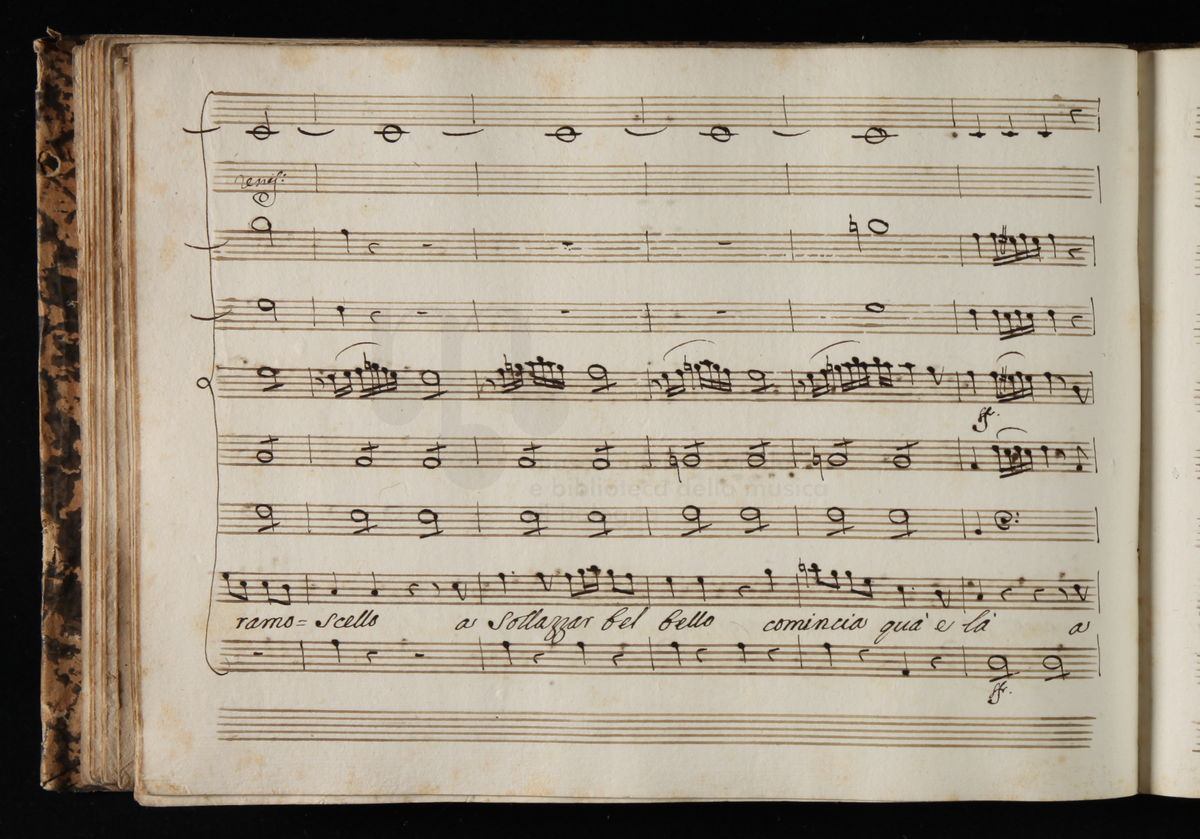 ff.
e biblioteca della musica
ramo=scello a Sollazzar bel bello comincia quà e là a
ff.